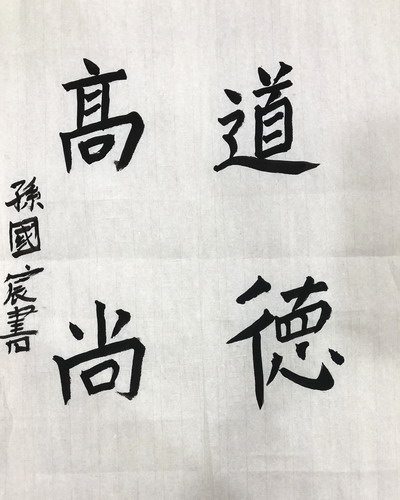 道德
髙尚
孫國宸書